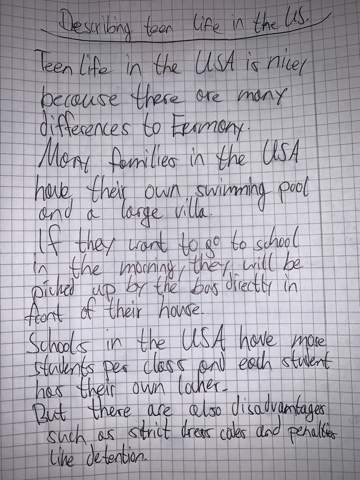 Describing teen life in the US.
Teen life in the USA is nice,
because there are many
differences to Eermony.
Many families in the USA
have their own swimming pool
and a large villa.
If they want to go to school
In the morning, they will be
picked up by the bus directly in
front of their house
Schools in the USA have more
students per class and each student
has their own locher.
But there are also disadvantages
such as strict dress codes and penalties
like detention.